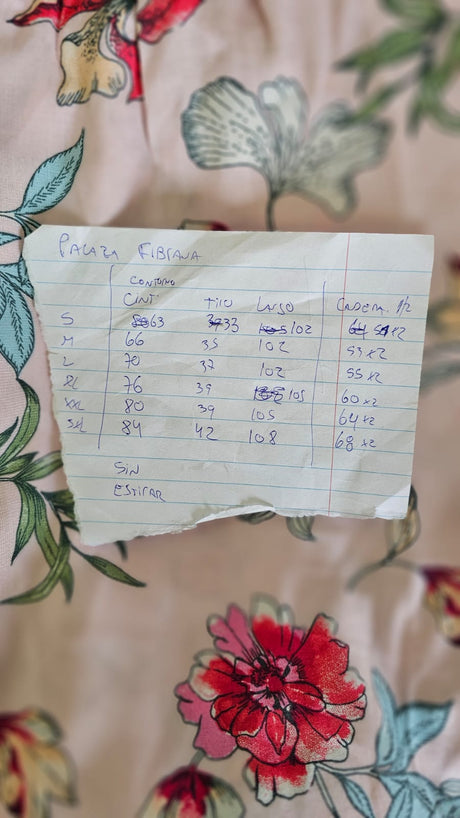 PALAZA FIBRANA
CONTORNO
CINT. TIRO LARGO CADERA. 1/2
S 63 33 102 51 x2
M 66 35 102 53 x2
L 70 37 102 55 x2
XL 76 39 105 60 x2
XXL 80 39 105 64 x2
3XL 84 42 108 68 x2
SIN
ESTIRAR